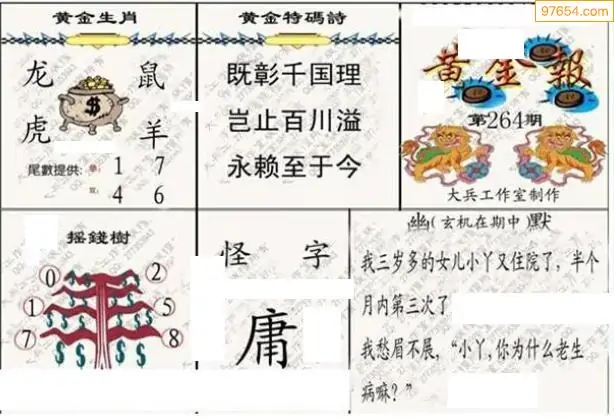 97654.com
黄金生肖
龙 鼠
虎 羊
尾數提供: 單: 1 7
雙: 4 6
黄金特碼詩
既彰千国理
岂止百川溢
永赖至于今
黄金報
第264期
大兵工作室制作
摇錢樹
0 2
1 5
7 8
怪 字
庸
幽(玄机在期中)默
我三岁多的女儿小丫又住院了，半个
月内第三次了
我愁眉不展，“小丫，你为什么老生
病嘛？”